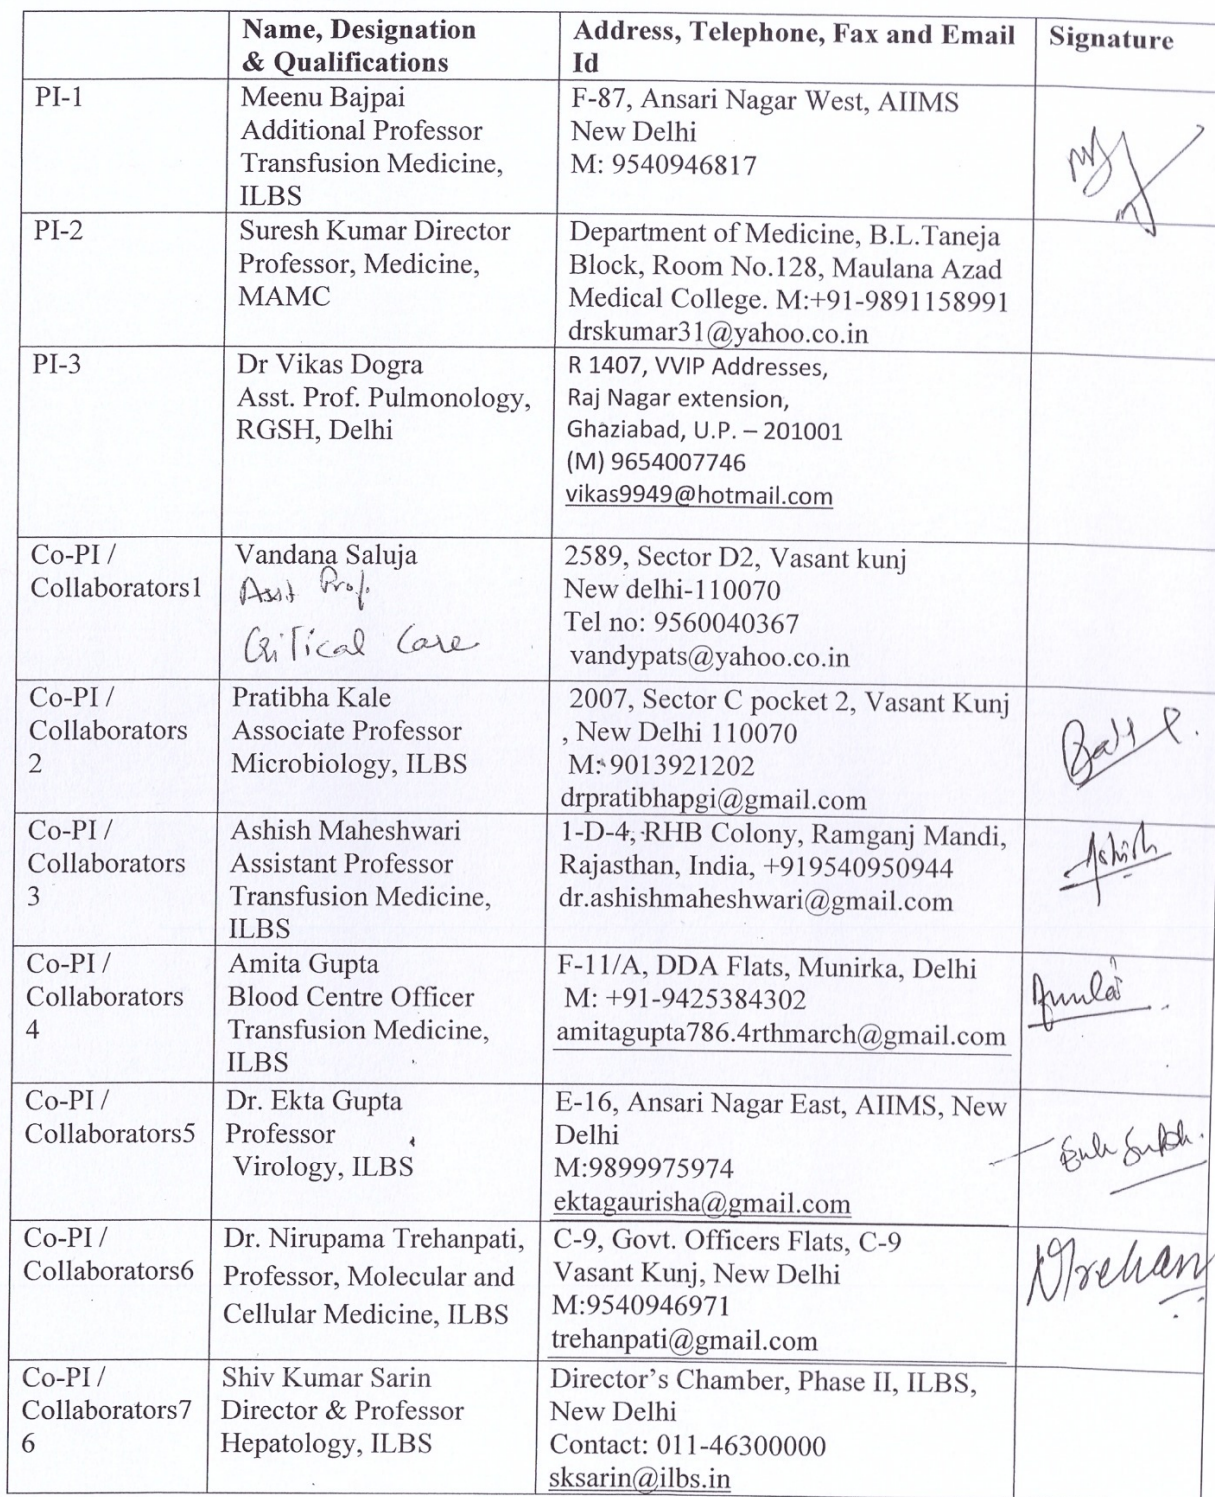 Name, Designation
& Qualifications
Address, Telephone, Fax and Email
Id
Signature
PI-1
Meenu Bajpai
Additional Professor
Transfusion Medicine,
ILBS
F-87, Ansari Nagar West, AIIMS
New Delhi
M: 9540946817
PI-2
Suresh Kumar Director
Professor, Medicine,
MAMC
Department of Medicine, B.L.Taneja
Block, Room No.128, Maulana Azad
Medical College. M:+91-9891158991
drskumar31@yahoo.co.in
PI-3
Dr Vikas Dogra
Asst. Prof. Pulmonology,
RGSH, Delhi
R 1407, VVIP Addresses,
Raj Nagar extension,
Ghaziabad, U.P. – 201001
(M) 9654007746
vikas9949@hotmail.com
Co-PI /
Collaborators1
Vandana Saluja
Asst Prof.
Critical Care
2589, Sector D2, Vasant kunj
New delhi-110070
Tel no: 9560040367
vandypats@yahoo.co.in
Co-PI /
Collaborators
2
Pratibha Kale
Associate Professor
Microbiology, ILBS
2007, Sector C pocket 2, Vasant Kunj
, New Delhi 110070
M: 9013921202
drpratibhapgi@gmail.com
Co-PI /
Collaborators
3
Ashish Maheshwari
Assistant Professor
Transfusion Medicine,
ILBS
1-D-4, RHB Colony, Ramganj Mandi,
Rajasthan, India, +919540950944
dr.ashishmaheshwari@gmail.com
Ashish
Co-PI /
Collaborators
4
Amita Gupta
Blood Centre Officer
Transfusion Medicine,
ILBS
F-11/A, DDA Flats, Munirka, Delhi
M: +91-9425384302
amitagupta786.4rthmarch@gmail.com
Co-PI /
Collaborators5
Dr. Ekta Gupta
Professor
Virology, ILBS
E-16, Ansari Nagar East, AIIMS, New
Delhi
M:9899975974
ektagaurisha@gmail.com
Co-PI /
Collaborators6
Dr. Nirupama Trehanpati,
Professor, Molecular and
Cellular Medicine, ILBS
C-9, Govt. Officers Flats, C-9
Vasant Kunj, New Delhi
M:9540946971
trehanpati@gmail.com
NTrehan
Co-PI /
Collaborators7
6
Shiv Kumar Sarin
Director & Professor
Hepatology, ILBS
Director's Chamber, Phase II, ILBS,
New Delhi
Contact: 011-46300000
sksarin@ilbs.in